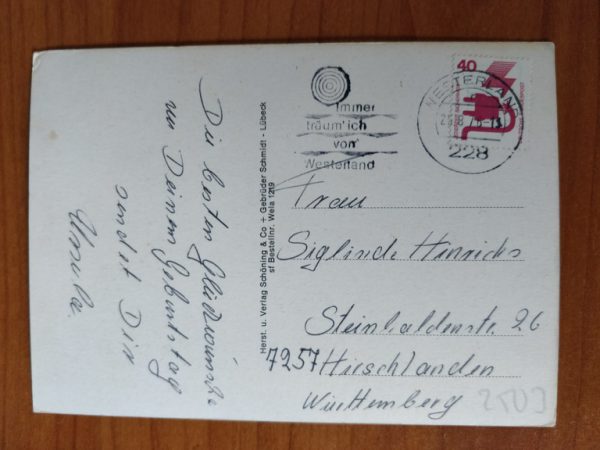 Die besten Glückwünsche
zum Deinem Geburtstag
sendet Dir
Ursula.
Herst. u. Verlag Schöning & Co + Gebrüder Schmidt - Lübeck
sf Bestellnr. Wela 1219
immer
träum' ich
von
Westerland
40
WESTERLAND
228
Frau
Siglinde Henrichs
Steinhaldenstr. 26
7257 Hirschlanden
Württemberg